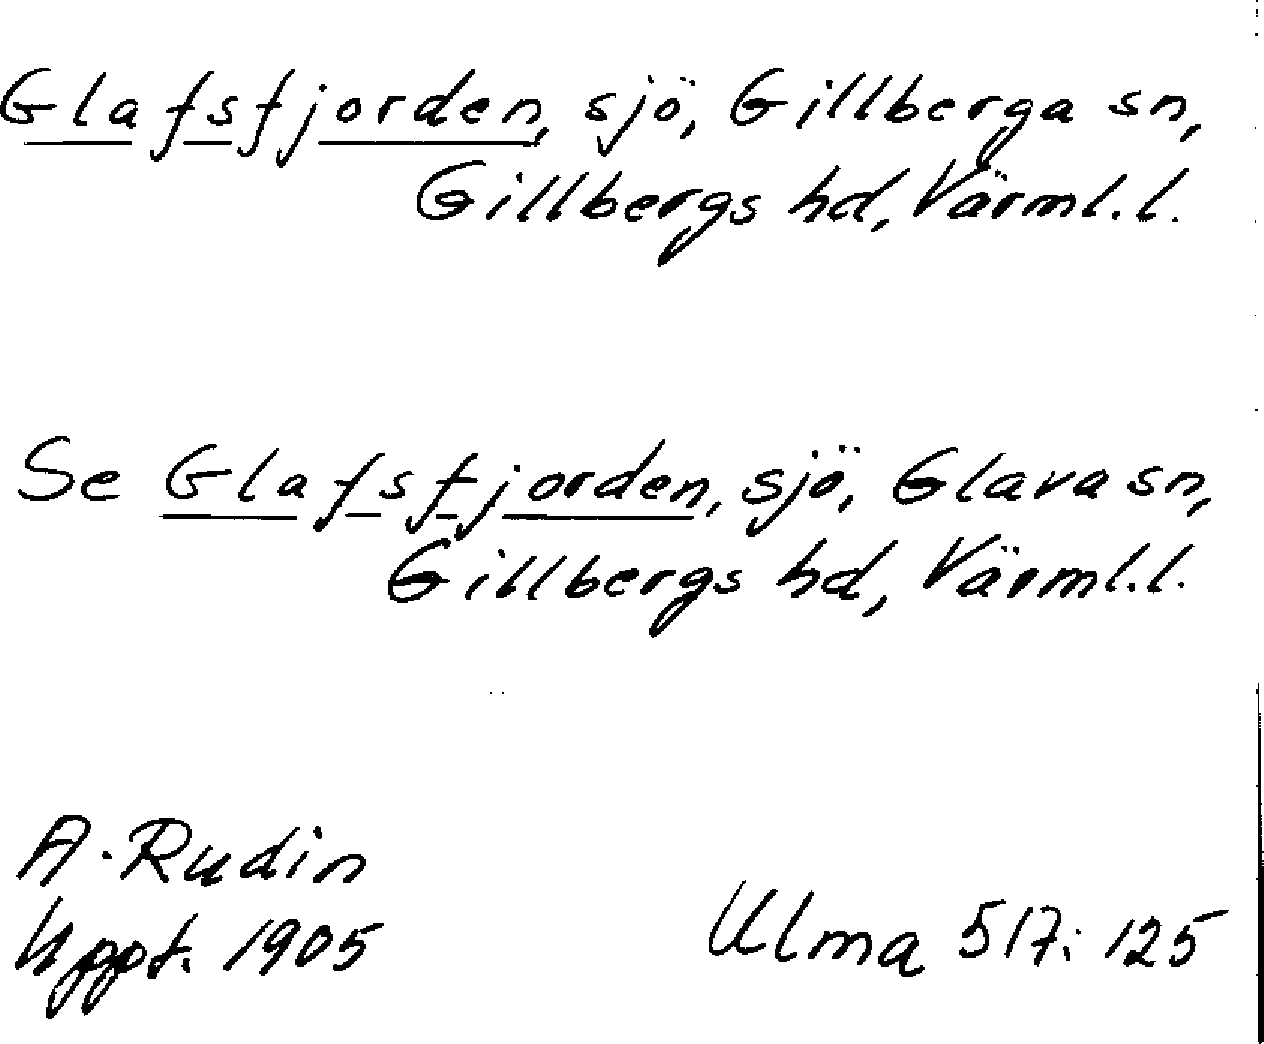 Glafsfjorden, sjö, Gillberga sn,
Gillbergs hd, Värml.l.
Se Glafsfjorden, sjö, Glava sn,
Gillbergs hd, Värml.l.
A. Rudin
Uppt. 1905
Ulma 517: 125